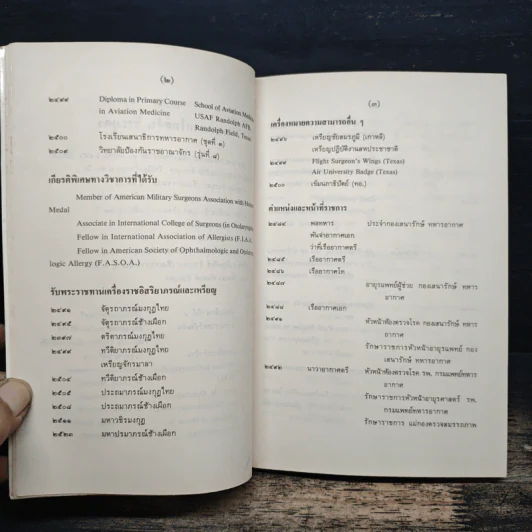 (๒)
๒๔๙๙ Diploma in Primary Course School of Aviation Medicine
in Aviation Medicine USAF Randolph AFB,
Randolph Field, Texas
๒๕๐๐ โรงเรียนเสนาธิการทหารอากาศ (ชุดที่ ๑)
๒๕๐๙ วิทยาลัยป้องกันราชอาณาจักร (รุ่นที่ ๘)
เกียรติพิเศษทางวิชาการที่ได้รับ
Member of American Military Surgeons Association with
Medal
Associate in International College of Surgeons (in
Fellow in International Association of Allergists (F.I.A.
Fellow in American Society of Ophthalmologic and
logic Allergy (F.A.S.O.A.)
รับพระราชทานเครื่องราชอิสริยาภรณ์และเหรียญ
๒๔๙๑ จัตุรถาภรณ์มงกุฎไทย
๒๔๙๕ จัตุรถาภรณ์ช้างเผือก
๒๔๙๗ ตริตาภรณ์มงกุฎไทย
๒๔๙๙ ทวีติยาภรณ์มงกุฎไทย
เหรียญจักรมาลา
๒๕๐๔ ทวีติยาภรณ์ช้างเผือก
๒๕๐๕ ประถมาภรณ์มงกุฎไทย
๒๕๐๘ ประถมาภรณ์ช้างเผือก
๒๕๑๑ มหาวชิรมงกุฎ
๒๕๒๓ มหาปรมาภรณ์ช้างเผือก
(๓)
เครื่องหมายความสามารถอื่น ๆ
๒๔๙๖ เหรียญชัยสมรภูมิ (เกาหลี)
เหรียญปฏิบัติงานสหประชาชาติ
๒๔๙๙ Flight Surgeon's Wings (Texas)
Air University Badge (Texas)
๒๕๐๐ เข็มเสนาธิปัตย์ (ทอ.)
ตำแหน่งและหน้าที่ราชการ
๒๔๘๔ พลทหาร ประจำกองเสนารักษ์ ทหารอากาศ
พันจ่าอากาศเอก
ว่าที่เรืออากาศตรี
๒๔๘๕ เรืออากาศตรี
๒๔๘๖ เรืออากาศโท
๒๔๘๗ อายุรแพทย์ผู้ช่วย กองเสนารักษ์ ทหาร
อากาศ
๒๔๘๘ เรืออากาศเอก
๒๔๙๑ หัวหน้าห้องตรวจโรค กองเสนารักษ์ ทหาร
อากาศ
รักษาราชการหัวหน้าอายุรแพทย์ กอง
เสนารักษ์ ทหารอากาศ
๒๔๙๒ นาวาอากาศตรี หัวหน้าห้องตรวจโรค รพ. กรมแพทย์ทหาร
อากาศ
รักษาราชการหัวหน้าอายุรศาสตร์ รพ.
กรมแพทย์ทหารอากาศ
รักษาราชการ แม่กองตรวจสมรรถภาพ